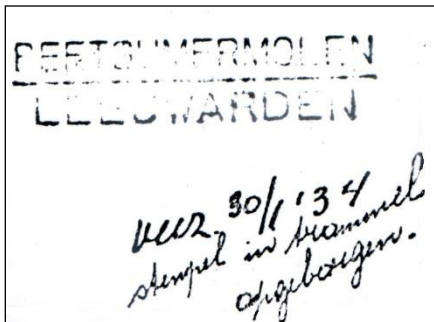 BEETGUMERMOLEN
LEEUWARDEN
verz. 30/1 '34
stempel in trommel
opgeborgen.